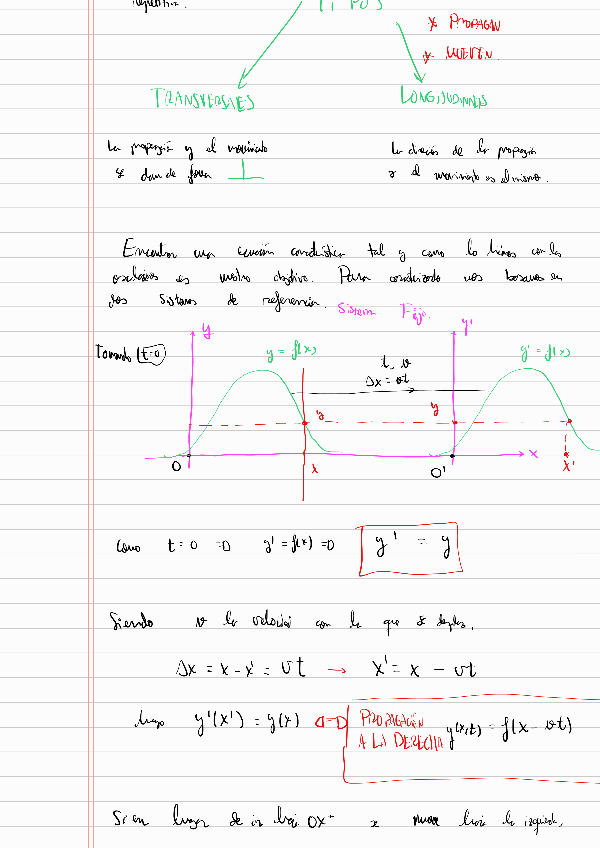 TIPOS
* PROPAGAN
* MUEVEN
TRANSVERSALES
LONGITUDINALES
La propagación y el movimiento
se dan de forma ⊥
La dirección de la propagación
y el movimiento es el mismo.
Encontrar una ecuación característica tal y como lo hicimos con los
osciladores es nuestro objetivo. Para considerarlo nos basamos en
dos sistemas de referencia. Sistema Fijo.
Tomando t=0
y
y = f(x)
t, v
Δx = vt
y'
y' = f(x)
y
y
O
x
O'
x
x'
Como t = 0 => y' = f(x) => y' = y
Siendo v la velocidad con la que se desplaza.
Δx = x - x' = vt → x' = x - vt
luego y'(x') = y(x) <=> PROPAGACIÓN
A LA DERECHA y(x,t) = f(x - vt)
Si en lugar de ir hacia OX+ se mueve hacia la izquierda,